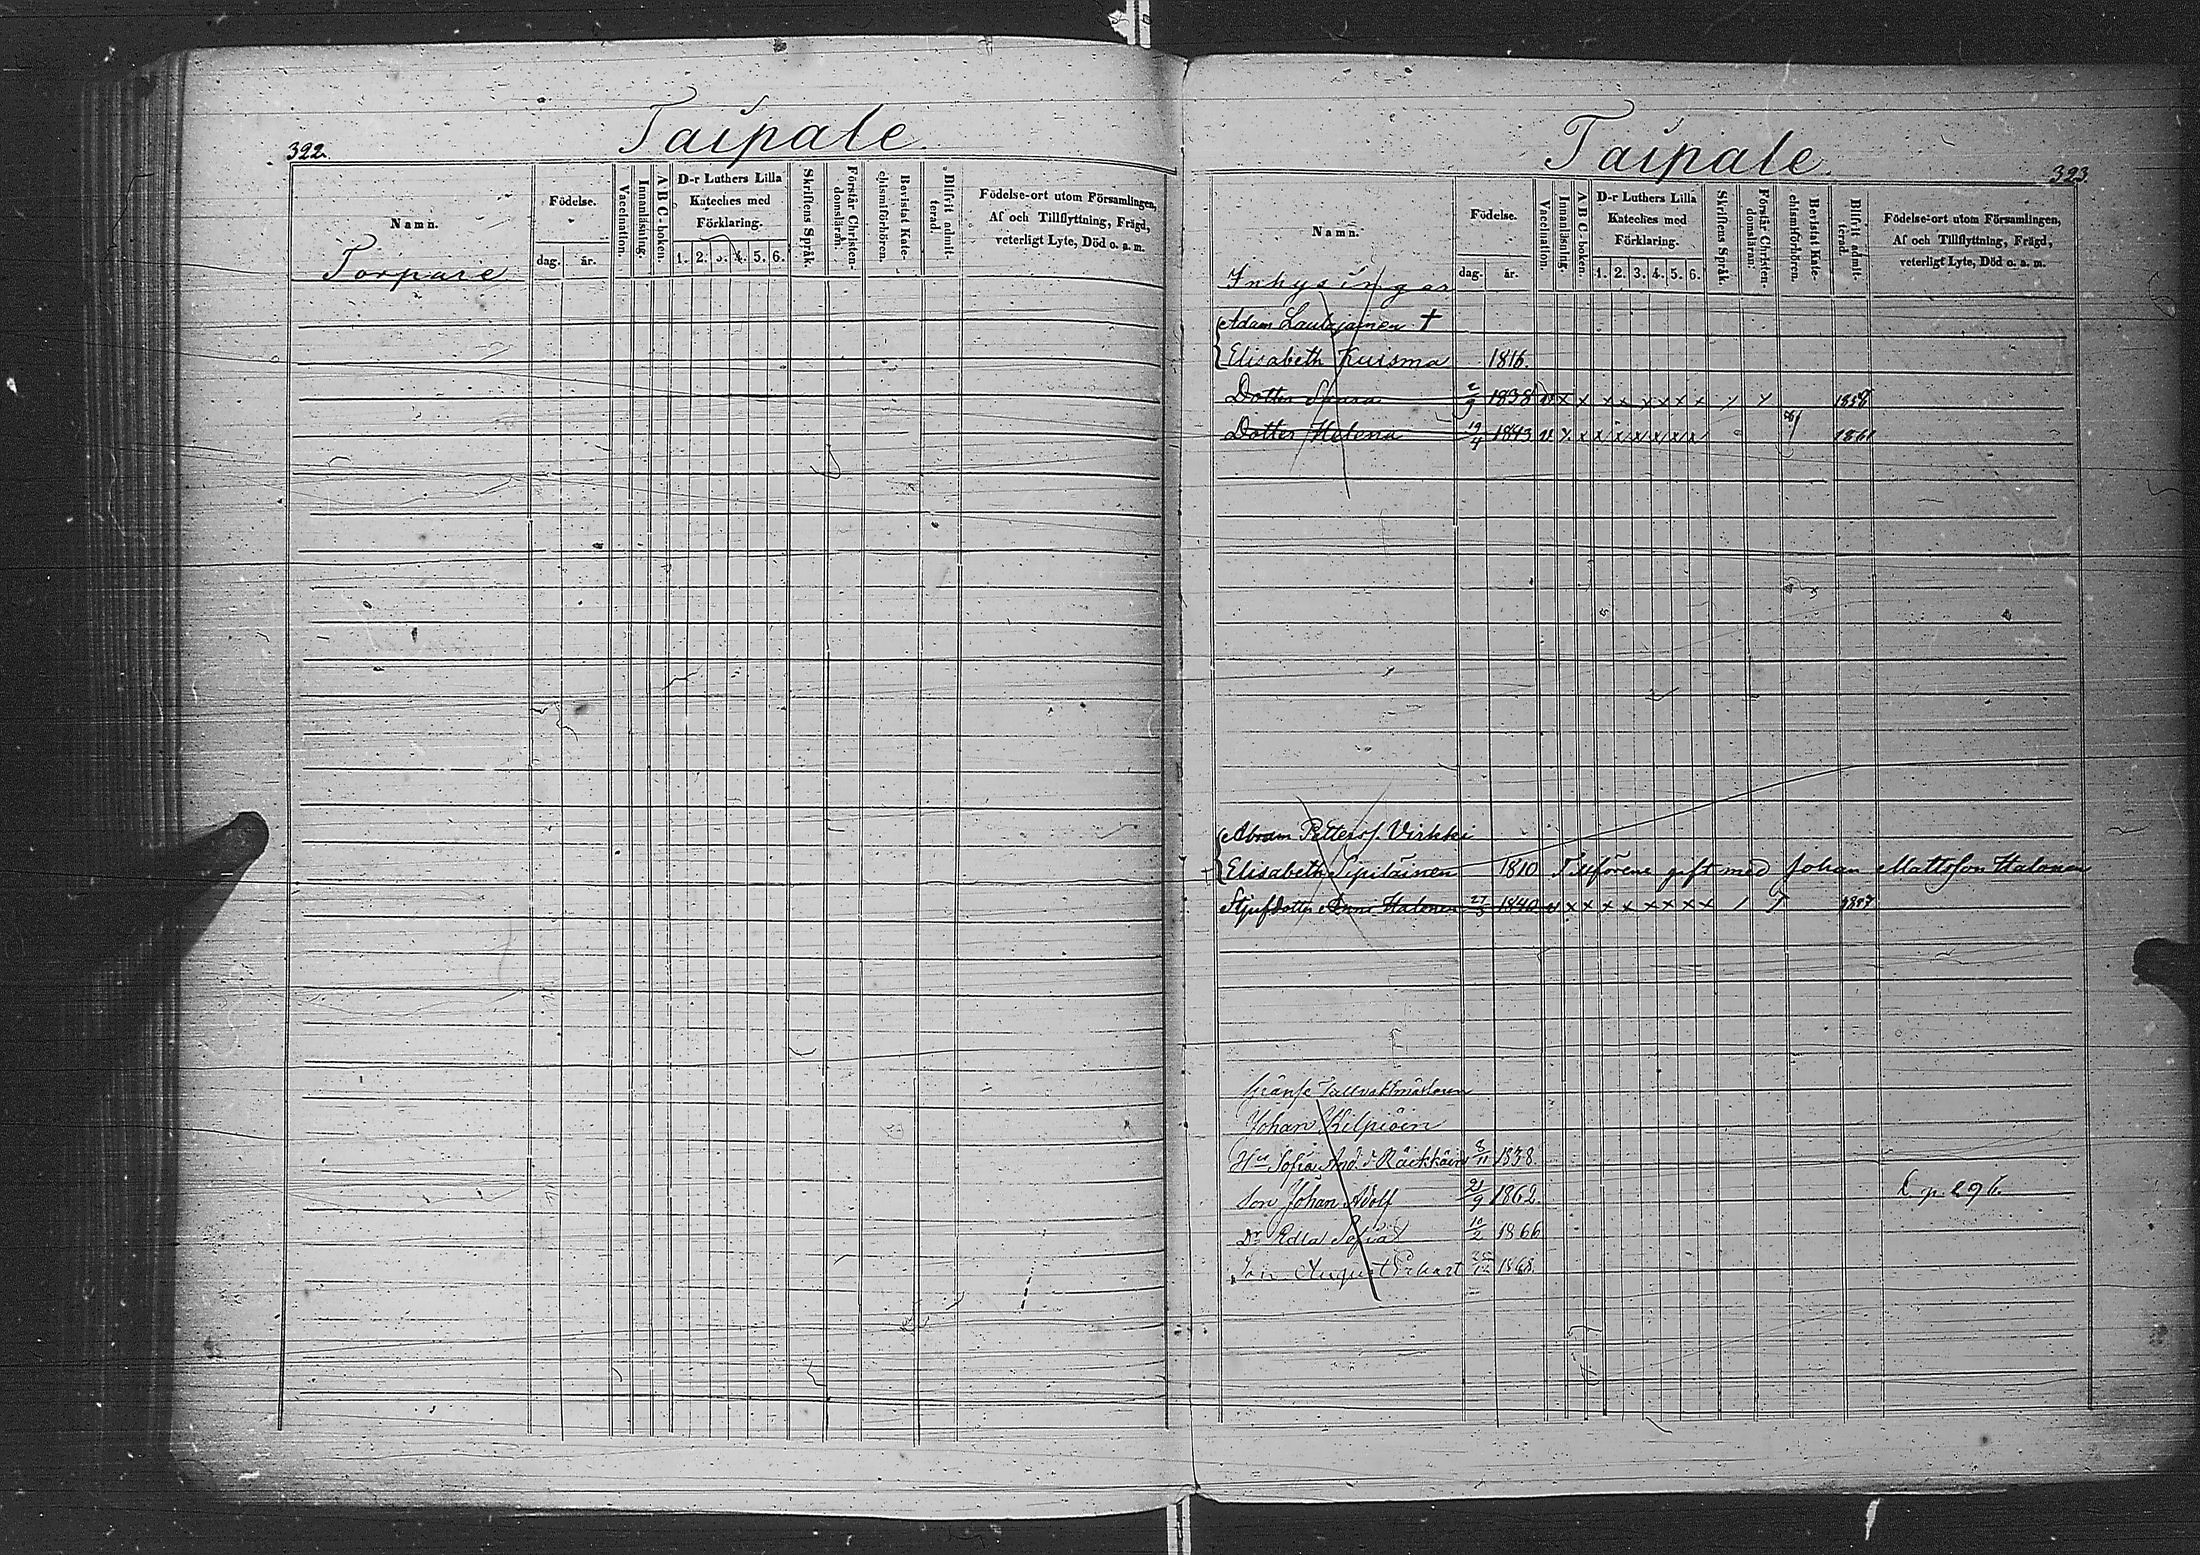 322.
Taipale.
Namn.
Födelse.
dag.
år.
Vaccination.
Innanläsning.
ABC-boken.
D-r Luthers Lilla
Kateches med
Förklaring.
1. 2. 3. 4. 5. 6.
Skriftens Språk.
Förstår Christen-
domsläran.
Bevistat Kate-
chismiförhören.
Blifvit admit-
terad.
Födelse-ort utom Församlingen,
Af och Tillflyttning, Frägd,
veterligt Lyte, Död o. s. m.
Torpare
Taipale.
323.
Namn.
Födelse.
dag.
år.
Vaccination.
Innanläsning.
ABC-boken.
D-r Luthers Lilla
Kateches med
Förklaring.
1. 2. 3. 4. 5. 6.
Skriftens Språk.
Förstår Christen-
domsläran.
Bevistat Kate-
chismiförhören.
Blifvit admit-
terad.
Födelse-ort utom Församlingen,
Af och Tillflyttning, Frägd,
veterligt Lyte, Död o. s. m.
Inhysingar
Adam Laulajainen †
Elisabeth Kuisma 1816.
Dotter 2/9 1838 v x x x x x x x x x 1858
Dotter Helena 19/4 1843 v x x x x x x x x 1861
Abram Petters. Virkki
Elisabeth Sipiläinen 1810 Tillförene gift med Johan Mattsson Halonen
Stjufdotter Anna Halonen 27/5 1840 v x x x x x x x x
Johan Kilpiäin
Hu Sofia And. d. Räikkäin 8/11 1838
Son Johan Adolf 21/9 1862.
Dr Edla Sofia 10/2 1866
Son August 1868.
p. 296.